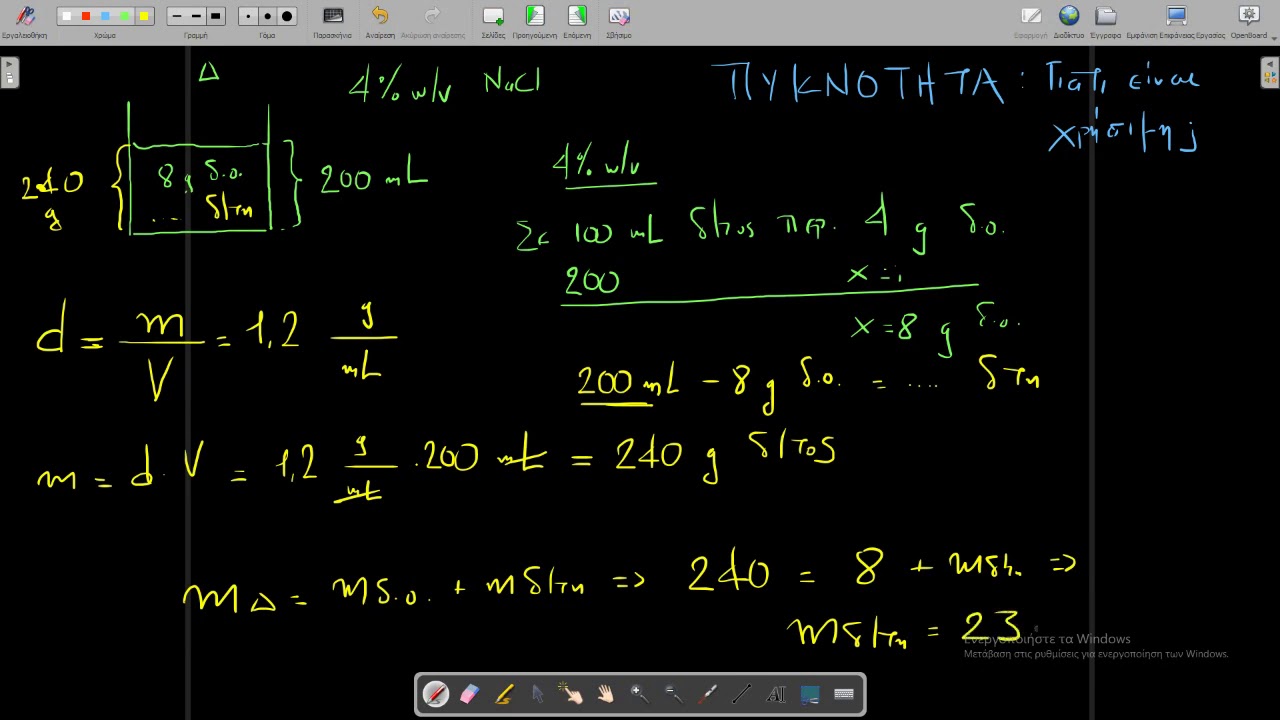 Εργαλειοθήκη Χρώμα Γραμμή Γόμα Παρασκήνια Αναίρεση Ακύρωση αναίρεσης Σελίδες Προηγούμενη Επόμενη Σβήσιμο Εφαρμογή Διαδίκτυο Έγγραφα Εμφάνιση Επιφάνειας Εργασίας OpenBoard
Δ
4% w/v NaCl
ΠΥΚΝΟΤΗΤΑ: Γιατί είναι
χρήσιμη;
240 g
8 g δ.ο.
... δ/τη
200 mL
4% w/v
Σε 100 mL δ/τος περ. 4 g δ.ο.
200 x=;
x = 8 g δ.ο.
d = m/V = 1,2 g/mL
200 mL - 8 g δ.ο. = .... δ/τη
m = d · V = 1,2 g/mL · 200 mL = 240 g δ/τος
mΔ = mδ.ο. + mδ/τη => 240 = 8 + mδ/τη =>
mδ/τη = 23
Ενεργοποιήστε τα Windows
Μετάβαση στις ρυθμίσεις για ενεργοποίηση των Windows.